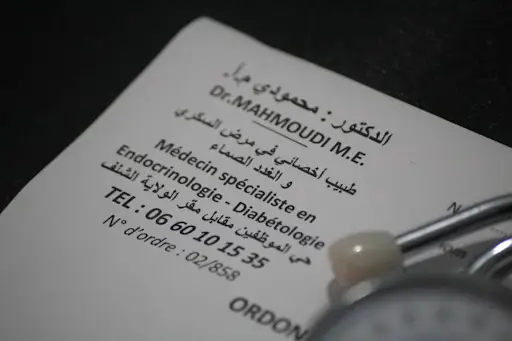 الدكتور : محمودي م.أ.
Dr.MAHMOUDI M.E.
طبيب أخصائي في مرض السكري
و الغدد الصماء
Médecin spécialiste en
Endocrinologie - Diabétologie
حي الموظفين مقابل مقر الولاية الشلف
TEL : 06 60 10 15 35
N° d'ordre : 02/858
ORDON